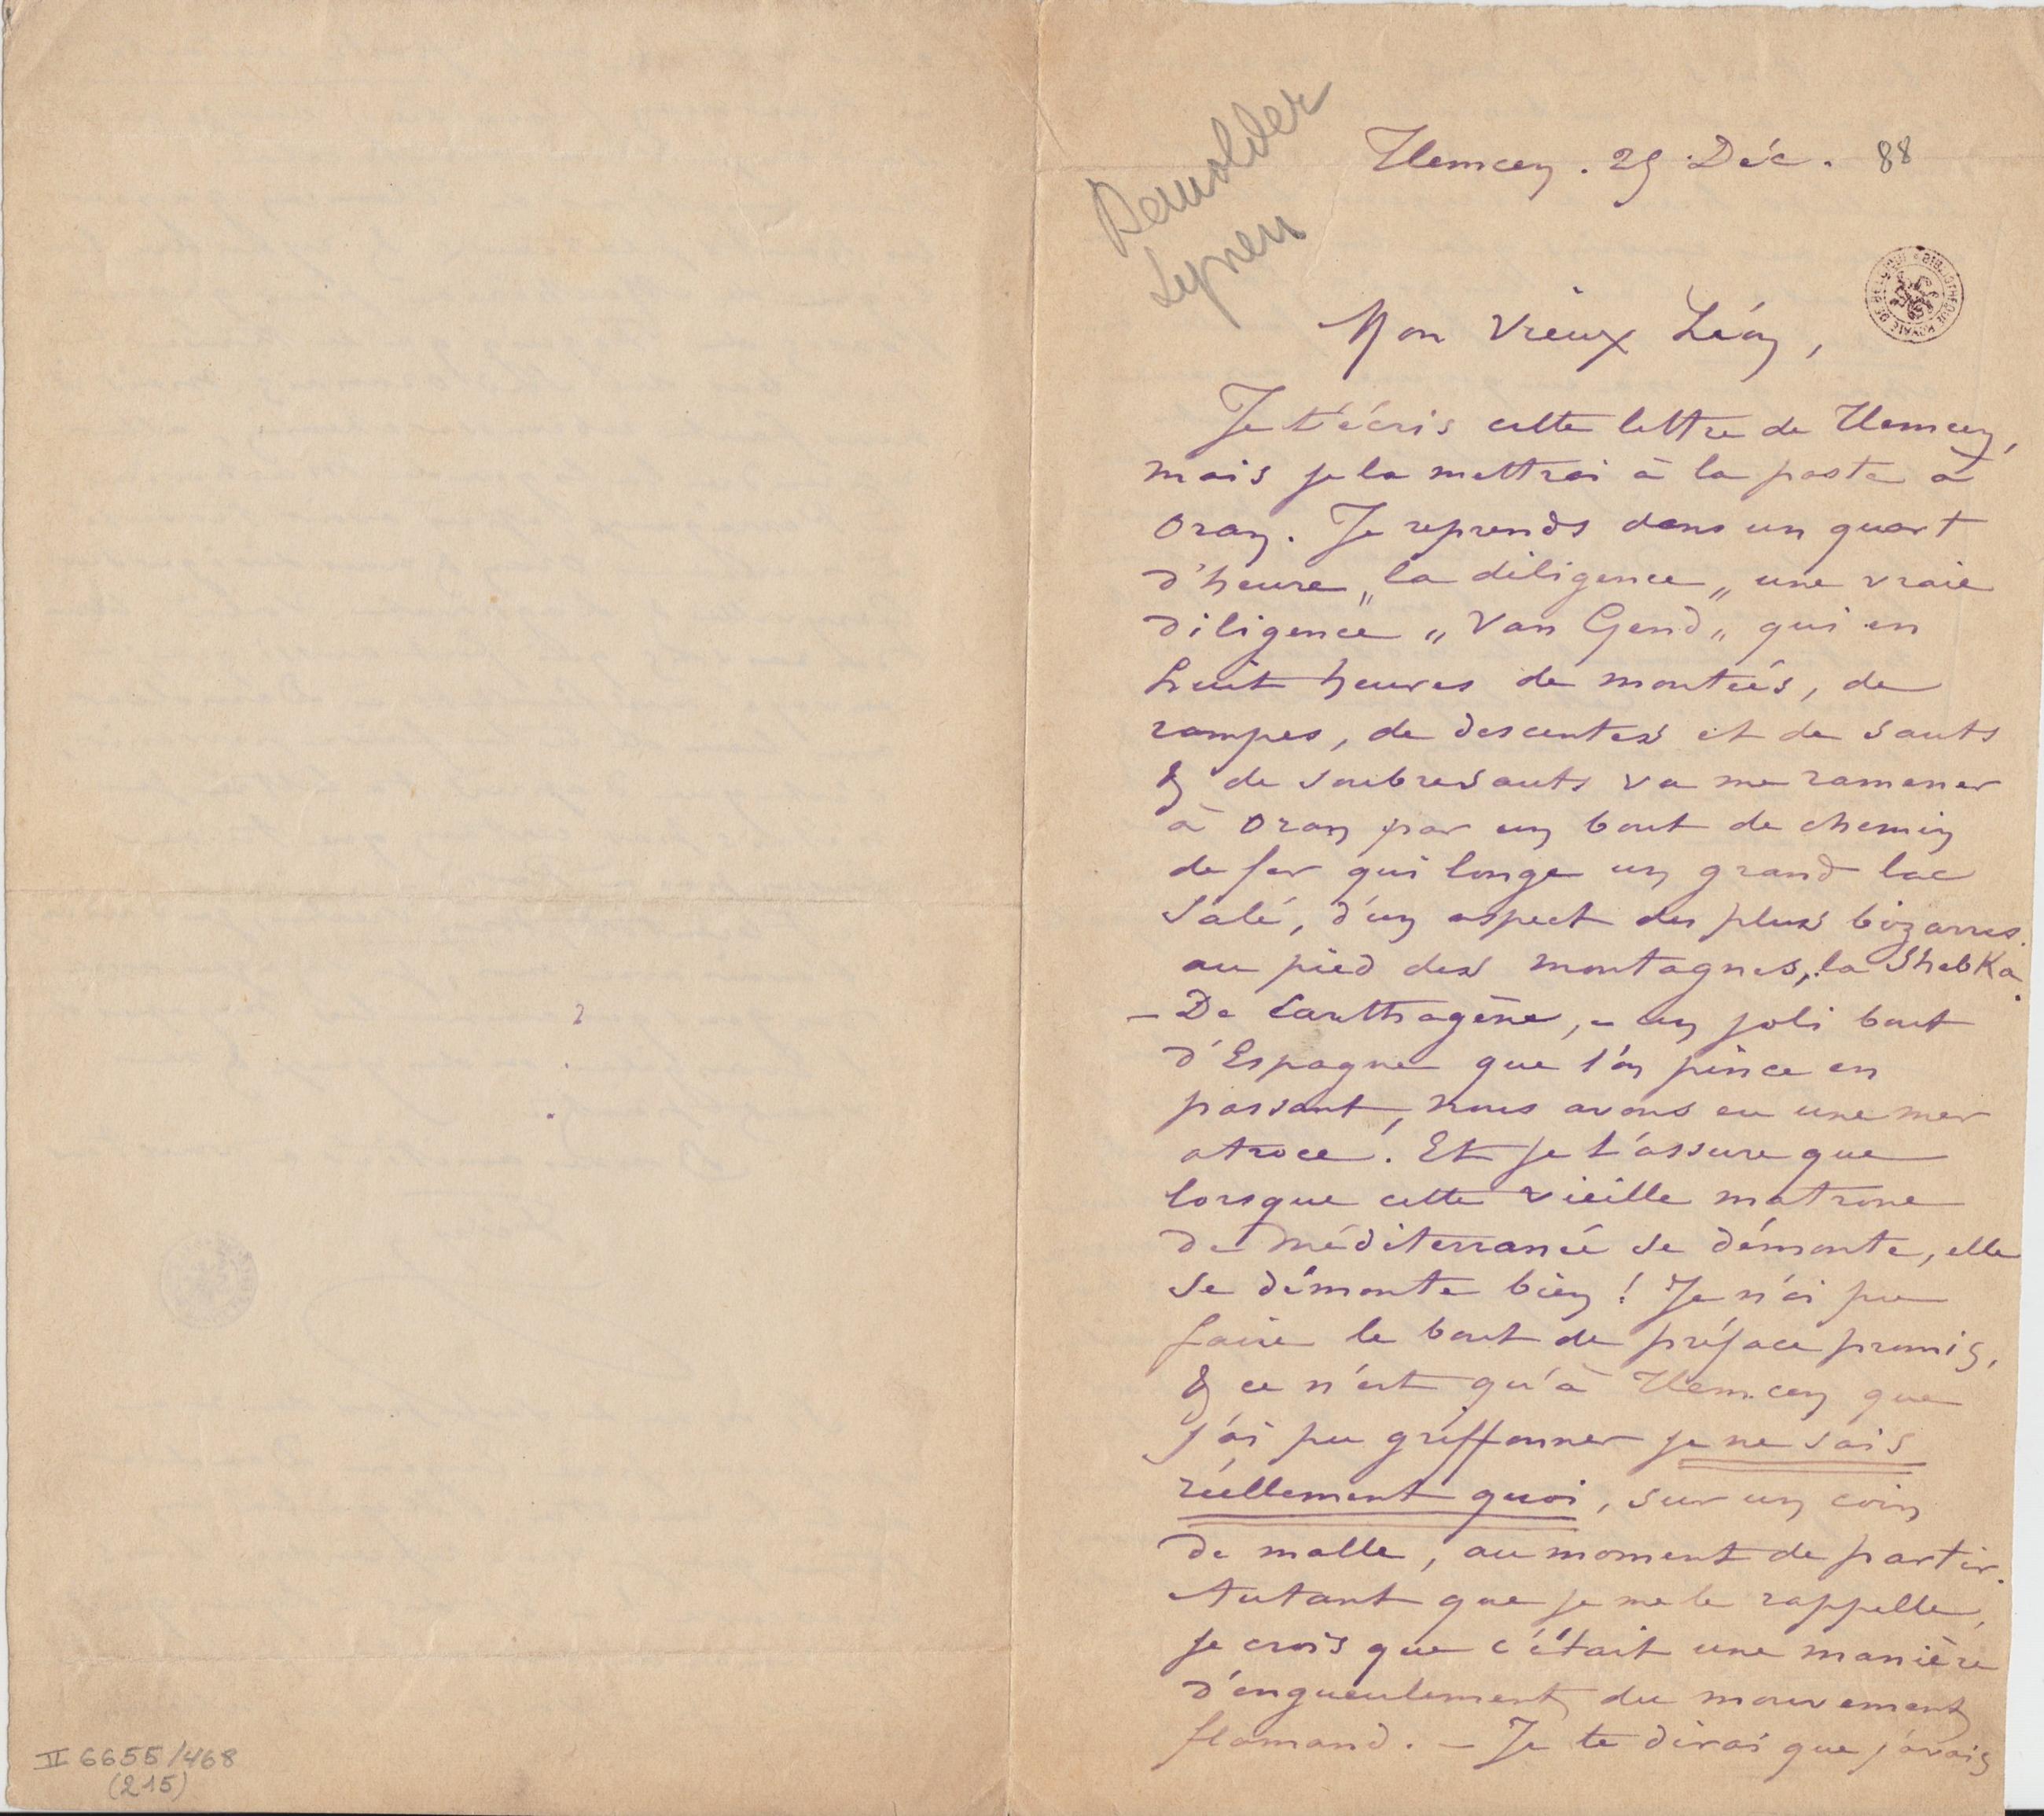 Demolder
Lynen
Tlemcen . 29 Déc . 88
BIBLIOTHÈQUE ROYALE DE BELGIQUE
Mon Vieux Léon,
Je t'écris cette lettre de Tlemcen,
mais je la mettrai à la poste à
Oran. Je reprends dans un quart
d'heure „la diligence„ une vraie
diligence „Van Gend„ qui en
huit heures de montées, de
rampes, de descentes et de sauts
& de soubresauts va me ramener
à Oran par un bout de chemin
de fer qui longe un grand lac
salé, d'un aspect des plus bizarres.
au pied des montagnes, la Shebka.
– De Carthagène, – un joli bout
d'Espagne que l'on pince en
passant, nous avons eu une mer
atroce. Et je t'assure que
lorsque cette vieille matrone
de méditerranée se démonte, elle
se démonte bien ! Je n'ai pu
faire le bout de préface promis,
& ce n'est qu'à Tlemcen que
j'ai pu griffonner je ne sais
réellement quoi, sur un coin
de malle, au moment de partir.
Autant que je me le rappelle,
je crois que c'était une manière
d'engueulement du mouvement
flamand. – Je te dirai que j'avais
II 6655/468
(215)